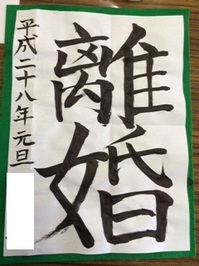 離婚
平成二十八年 元旦